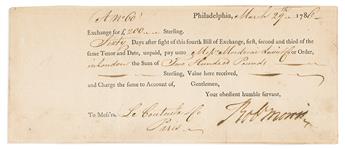 Philadelphia, March 29th 1786
Exchange for £200 Sterling.
Sixty Days after sight of this fourth Bill of Exchange, first, second and third of the
same Tenor and Date, unpaid, pay unto or Order,
in London the Sum of Two Hundred Pounds
Sterling, Value here received,
and Charge the same to Account of, Gentlemen,
Your obedient humble servant,
To Mess'rs. Le Couteulx & Co
Paris
Rob Morris